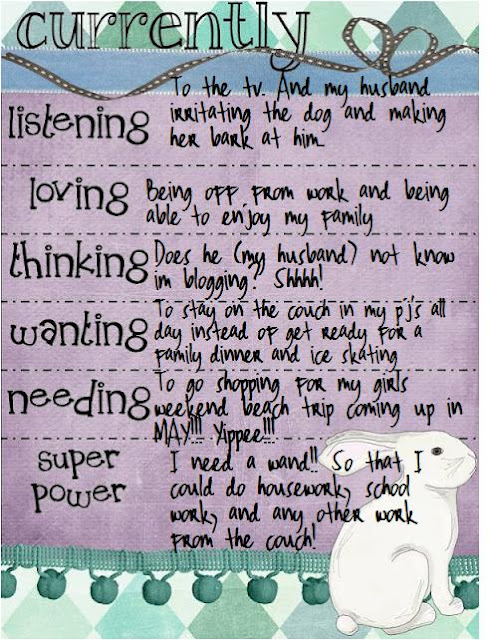 currently
listening
To the tv. And my husband
irritating the dog and making
her bark at him.
loving
Being off from work and being
able to enjoy my family
thinking
Does he (my husband) not know
im blogging? Shhhh!
wanting
To stay on the couch in my pj's all
day instead of get ready for a
family dinner and ice skating
needing
To go shopping for my girls
weekend beach trip coming up in
MAY!!! Yippee!!!
super
power
I need a wand!! So that I
could do housework, school
work, and any other work
from the couch!